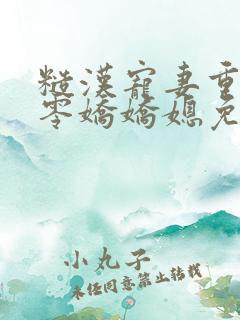 糙漢寵妻重
零嬌嬌媳免
小丸子
未經同意禁止轉載